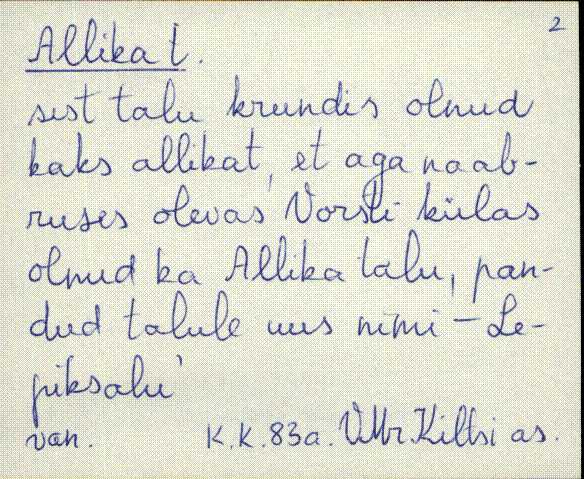 2
Allika t.
sest talu krundis olnud
kaks allikat, et aga naab-
ruses olevas Vorsti külas
olnud ka Allika talu, pan-
dud talule uus nimi – Le-
piksalu'
van. K.K. 83a. VMr. Kiltsi as.